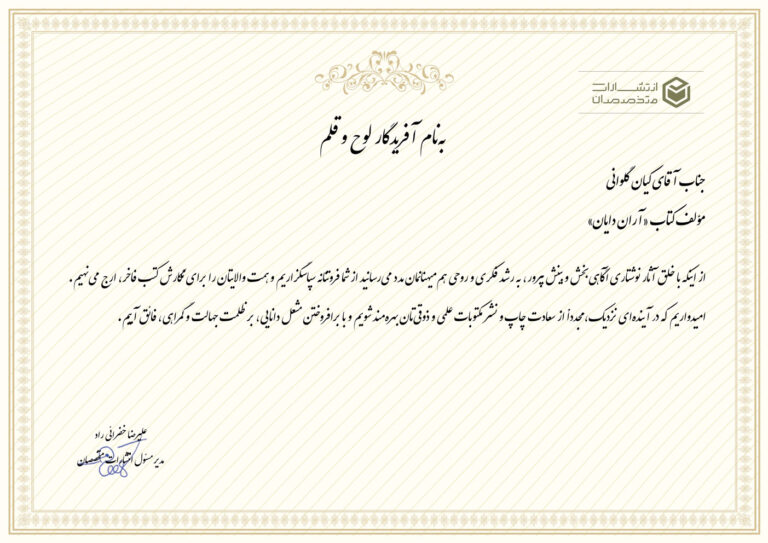 انتشارات
متخصصان
به‌نام آفریدگار لوح و قلم
جناب آقای کیان گلوانی
مؤلف کتاب «آران دایان»
از اینکه با خلق آثار نوشتاری آگاهی‌بخش و بینش پرور، به رشد فکری و روحی هم میهنانمان مدد می‌رسانید از شما فروتنانه سپاسگزاریم و همت والایتان را برای نگارش کتب فاخر، ارج می‌نهیم.
امیدواریم که در آینده‌ای نزدیک، مجدداً از سعادت چاپ و نشر مکتوبات علمی و ذوقی‌تان بهره‌مند شویم و با برافروختن مشعل دانایی، بر ظلمت جهالت و گمراهی، فائق آییم.
علیرضا خفرائی راد
مدیر مسئول انتشارات متخصصان